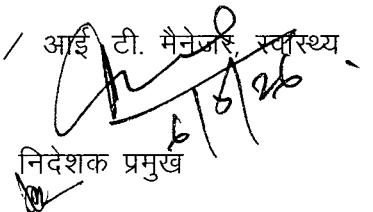 / आई टी. मैनेजर, स्वास्थ्य
6/6/26
निदेशक प्रमुख